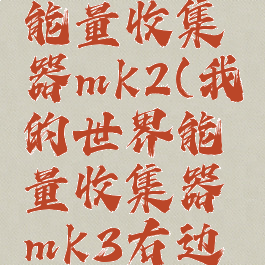 能量收集
器mk2(我
的世界能
量收集器
mk3右边